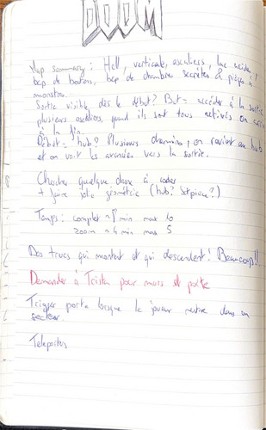 DOOM
Map summary : Hell, verticale, escaliers, lac
bcp de boutons, bcp de chambres secrètes & pièges à
monstre.
Sortie visible dès le début ? But = accéder à la sortie
plusieurs quand ils sont tous activés on
à la fin.
Début = hub ? Plusieurs chemins, on revient au hub
et on voit les avancées vers la sortie.
Chercher quelque chose à coder
+ faire géométrie (hub ? )
Temps : complet 8 min max 10
zoom 6 min max 5
Des trucs qui montent et qui descendent ! Beaucoup !!
Demander à Tristan pour murs et porte
Trigger porte lorsque le joueur rentre dans un
secteur.